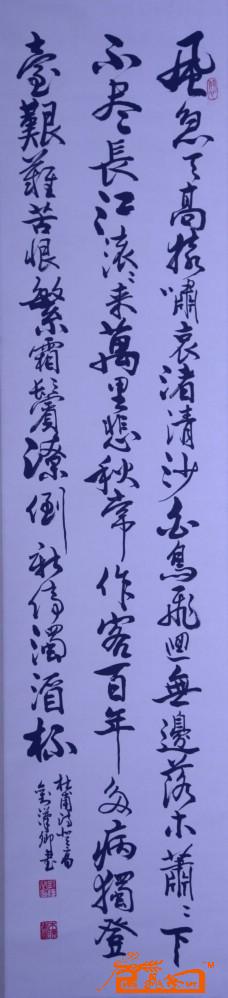 風急天高猿嘯哀渚清沙白鳥飛迴無邊落木蕭〻下
不盡長江滚〻来萬里悲秋常作客百年多病獨登
臺艱難苦恨繁霜鬢潦倒新停濁酒杯
杜甫詩登高
漢卿書